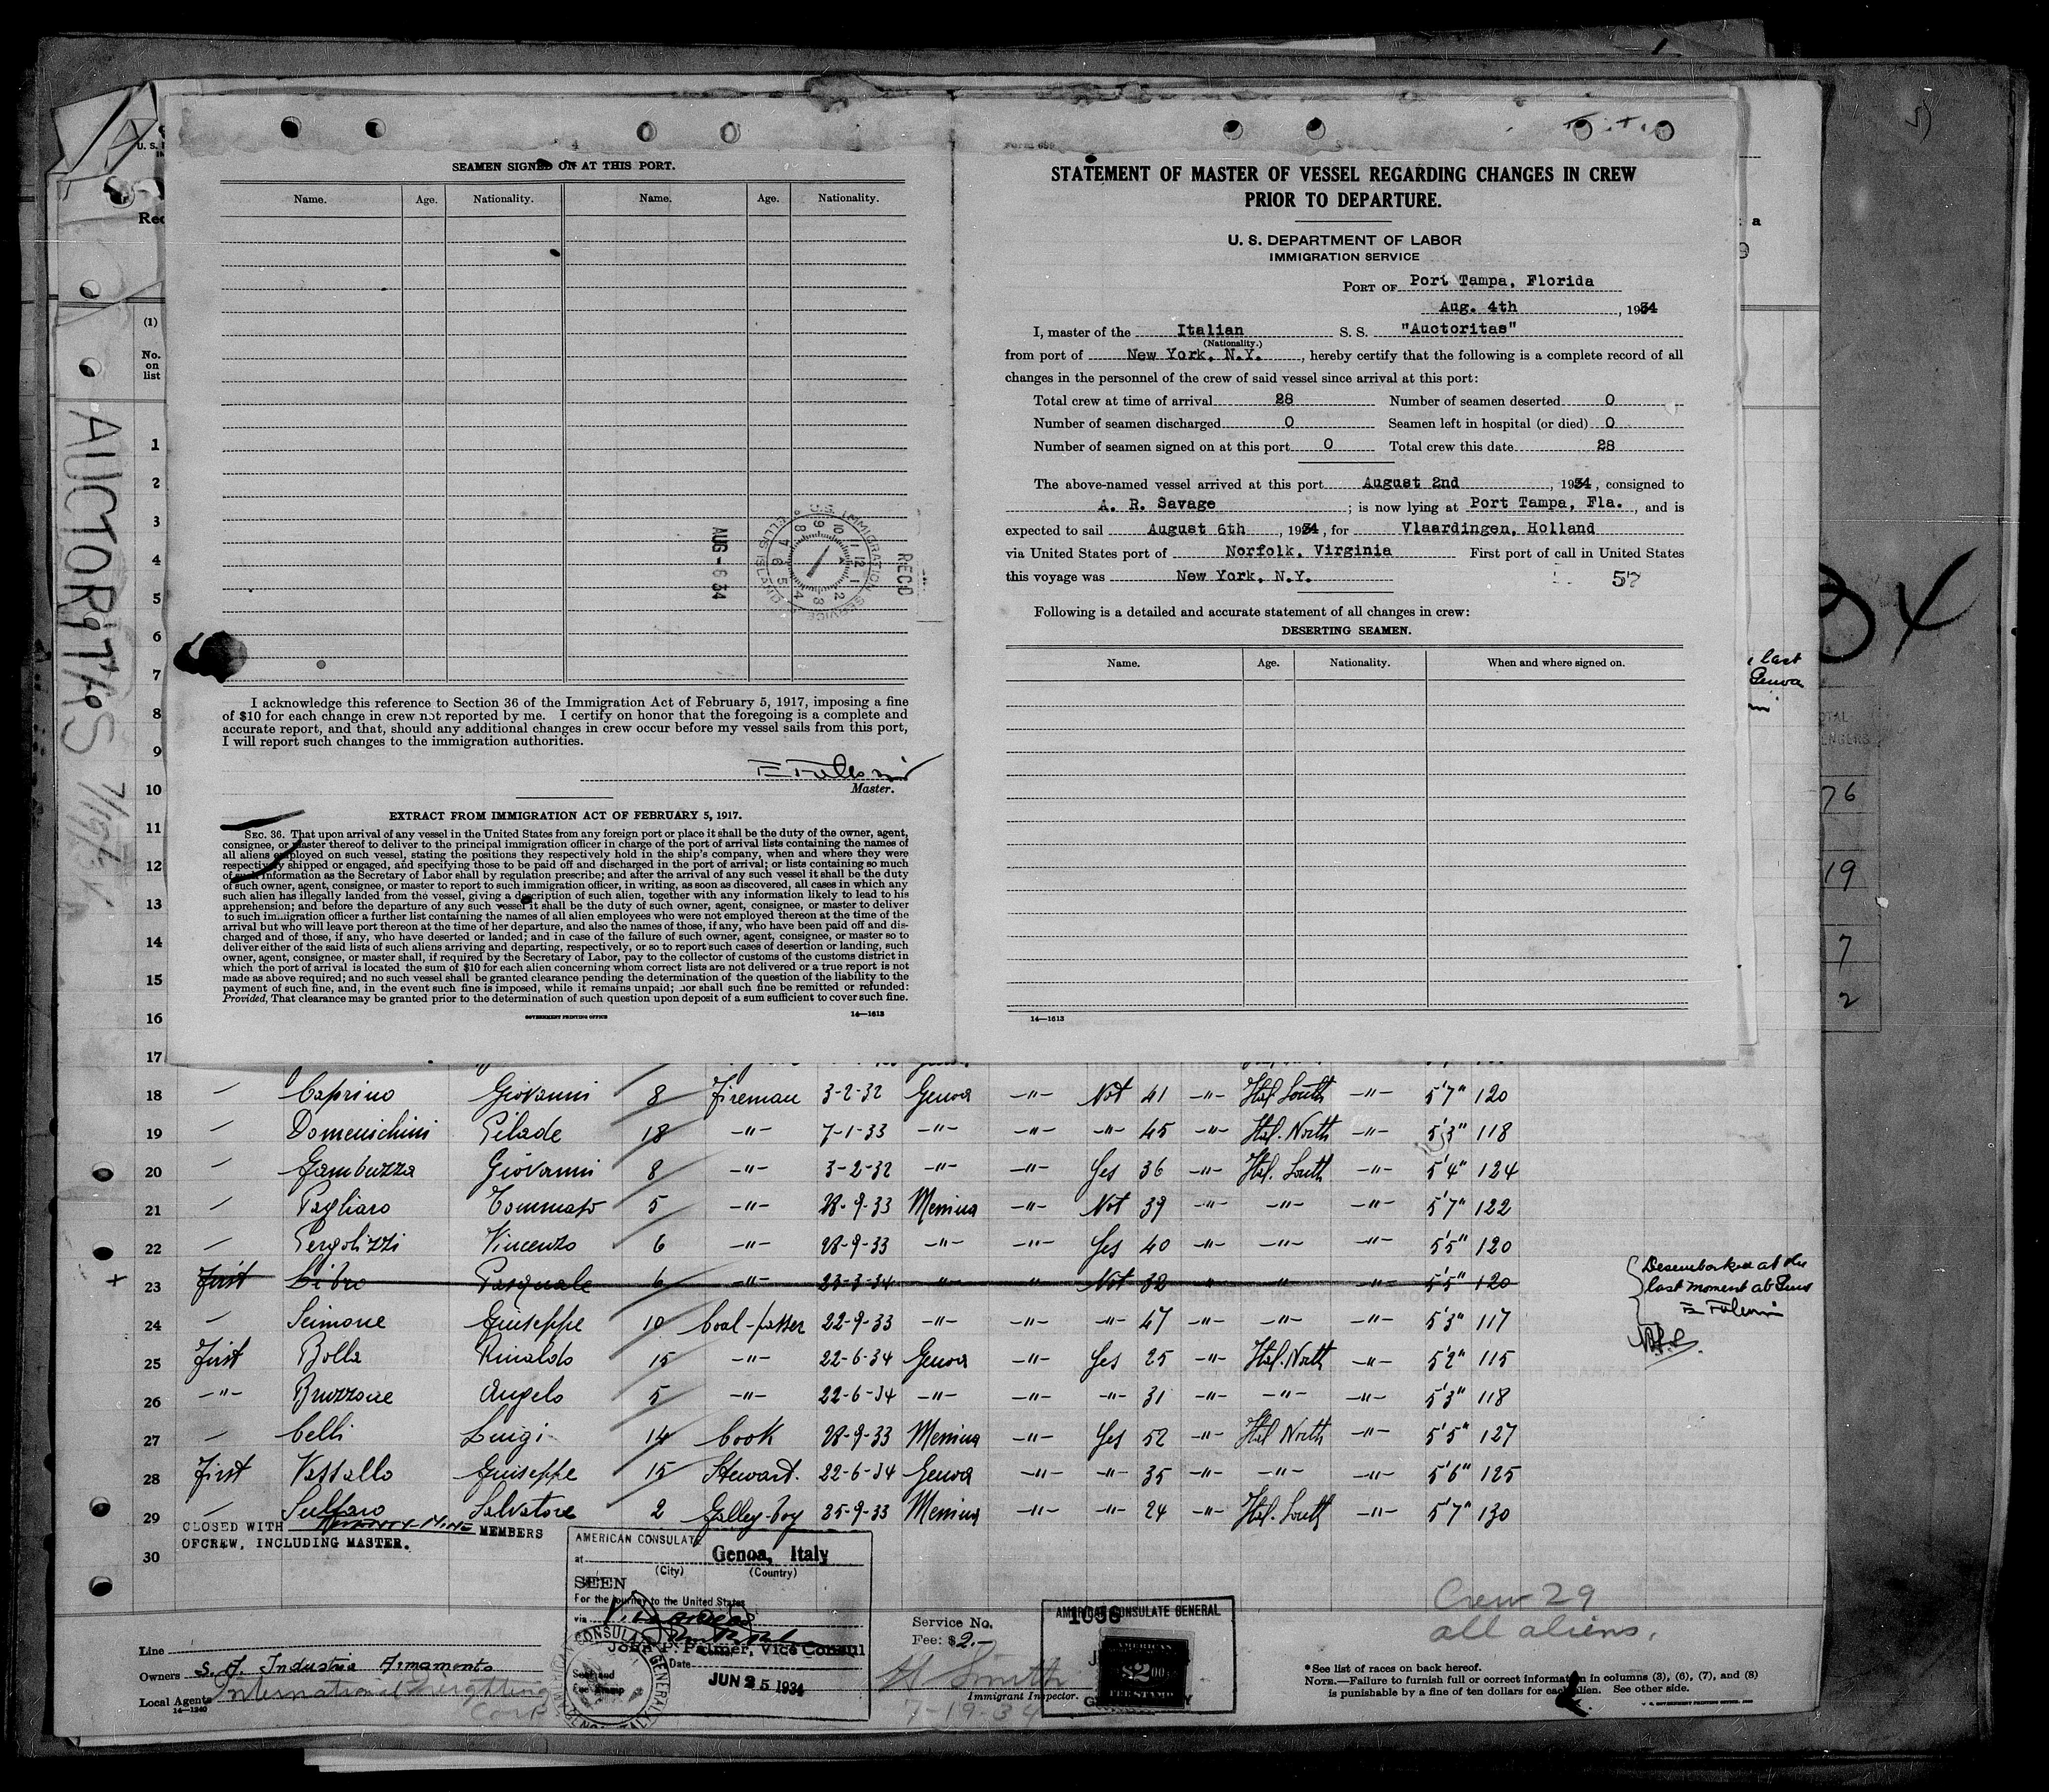 SEAMEN SIGNED ON AT THIS PORT.
Name. Age. Nationality. Name. Age. Nationality.
AUG -6 34
U. S. IMMIGRATION SERVICE
ELLIS ISLAND
REC'D
I acknowledge this reference to Section 36 of the Immigration Act of February 5, 1917, imposing a fine
of $10 for each change in crew not reported by me. I certify on honor that the foregoing is a complete and
accurate report, and that, should any additional changes in crew occur before my vessel sails from this port,
I will report such changes to the immigration authorities.
Master.
EXTRACT FROM IMMIGRATION ACT OF FEBRUARY 5, 1917.
SEC. 36. That upon arrival of any vessel in the United States from any foreign port or place it shall be the duty of the owner, agent,
consignee, or master thereof to deliver to the principal immigration officer in charge of the port of arrival lists containing the names of
all aliens employed on such vessel, stating the positions they respectively hold in the ship's company, when and where they were
respectively shipped or engaged, and specifying those to be paid off and discharged in the port of arrival; or lists containing so much
of such information as the Secretary of Labor shall by regulation prescribe; and after the arrival of any such vessel it shall be the duty
of such owner, agent, consignee, or master to report to such immigration officer, in writing, as soon as discovered, all cases in which any
such alien has illegally landed from the vessel, giving a description of such alien, together with any information likely to lead to his
apprehension; and before the departure of any such vessel it shall be the duty of such owner, agent, consignee, or master to deliver
to such immigration officer a further list containing the names of all alien employees who were not employed thereon at the time of the
arrival but who will leave port thereon at the time of her departure, and also the names of those, if any, who have been paid off and dis-
charged and of those, if any, who have deserted or landed; and in case of the failure of such owner, agent, consignee, or master so to
deliver either of the said lists of such aliens arriving and departing, respectively, or so to report such cases of desertion or landing, such
owner, agent, consignee, or master shall, if required by the Secretary of Labor, pay to the collector of customs of the customs district in
which the port of arrival is located the sum of $10 for each alien concerning whom correct lists are not delivered or a true report is not
made as above required; and no such vessel shall be granted clearance pending the determination of the question of the liability to the
payment of such fine, and, in the event such fine is imposed, while it remains unpaid; nor shall such fine be remitted or refunded:
Provided, That clearance may be granted prior to the determination of such question upon deposit of a sum sufficient to cover such fine.
GOVERNMENT PRINTING OFFICE 14—1613
STATEMENT OF MASTER OF VESSEL REGARDING CHANGES IN CREW
PRIOR TO DEPARTURE.
U. S. DEPARTMENT OF LABOR
IMMIGRATION SERVICE
PORT OF Port Tampa, Florida
Aug. 4th, 1934
I, master of the Italian S. S. "Auctoritas"
(Nationality.)
from port of New York, N.Y., hereby certify that the following is a complete record of all
changes in the personnel of the crew of said vessel since arrival at this port:
Total crew at time of arrival 28 Number of seamen deserted 0
Number of seamen discharged 0 Seamen left in hospital (or died) 0
Number of seamen signed on at this port 0 Total crew this date 28
The above-named vessel arrived at this port August 2nd, 1934, consigned to
A. R. Savage; is now lying at Port Tampa, Fla., and is
expected to sail August 6th, 1934, for Vlaardingen, Holland
via United States port of Norfolk, Virginia First port of call in United States
this voyage was New York, N.Y. 57
Following is a detailed and accurate statement of all changes in crew:
DESERTING SEAMEN.
Name. Age. Nationality. When and where signed on.
14—1613
AUCTORITAS 7/19/34
(1)
No.
on
list
1
2
3
4
5
6
7
8
9
10
11
12
13
14
15
16
17
34
last
Genoa
76
19
7
2
18 Caprino Giovanni 8 Fireman 3-2-32 Genoa -"- Not 41 -"- Ital. South -"- 5'7" 120
19 Domenichini Pilade 18 -"- 7-1-33 -"- -"- -"- 45 -"- Ital. North -"- 5'3" 118
20 Gambuzza Giovanni 8 -"- 3-2-32 -"- -"- Yes 36 -"- Ital. South -"- 5'4" 124
21 Pagliaro Tommaso 5 -"- 28-9-33 Messina -"- Not 39 -"- -"- -"- 5'7" 122
22 Pergolizzi Vincenzo 6 -"- 28-9-33 -"- -"- Yes 40 -"- -"- -"- 5'5" 120
23 First Libro Pasquale 6 -"- 23-3-34 " " Not 32 " " -"- 5'5" 120
Desembarked at the
last moment at
24 Scimone Giuseppe 10 Coal-passer 22-9-33 -"- -"- -"- 47 -"- -"- -"- 5'3" 117
25 First Bolla Rinaldo 15 -"- 22-6-34 Genoa -"- Yes 25 -"- Ital. North -"- 5'2" 115
26 -"- Bruzzone Angelo 5 -"- 22-6-34 -"- -"- -"- 31 -"- -"- -"- 5'3" 118
27 Celli Luigi 14 Cook 28-9-33 Messina -"- Yes 52 -"- Ital North -"- 5'5" 127
28 First Vassallo Giuseppe 15 Stewart. 22-6-34 Genoa -"- -"- 35 -"- -"- -"- 5'6" 125
29 Sulfaro Salvatore 2 Galley-boy 25-9-33 Messina -"- -"- 24 -"- Ital. South -"- 5'7" 130
CLOSED WITH TWENTY-NINE MEMBERS
OF CREW, INCLUDING MASTER.
30
AMERICAN CONSULATE
at Genoa, Italy
(City) (Country)
SEEN
For the journey to the United States
via
John P. Palmer, Vice Consul
Date JUN 25 1934
Seal and
Fee Stamp
Crew 29
all aliens.
Line
Owners S. A. Industria Armamento
Local Agents International Freighting
Corp
14—1240
Service No. 1056
Fee: $2.-
H Smith
Immigrant Inspector.
7-19-34
AMERICAN CONSULATE GENERAL
AMERICAN
$2.00
FEE STAMP
*See list of races on back hereof.
NOTE.—Failure to furnish full or correct information in columns (3), (6), (7), and (8)
is punishable by a fine of ten dollars for each alien. See other side.